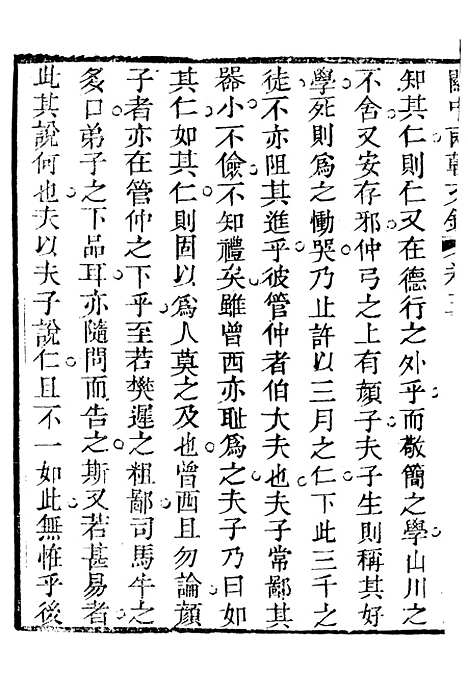 關中兩朝文鈔
知其仁則仁又在德行之外乎而敬簡之學山川之
不舍又安存邪仲弓之上有顏子夫子生則稱其好
學死則爲之慟哭乃止許以三月之仁下此三千之
徒不亦阻其進乎彼管仲者伯大夫也夫子常鄙其
器小不儉不知禮矣雖曾西亦恥爲之夫子乃曰如
其仁如其仁則固以爲人莫之及也曾西且勿論顏
子者亦在管仲之下乎至若樊遲之粗鄙司馬牛之
多口弟子之下品耳亦隨問而告之斯又若甚易者
此其說何也夫以夫子說仁且不一如此無惟乎後